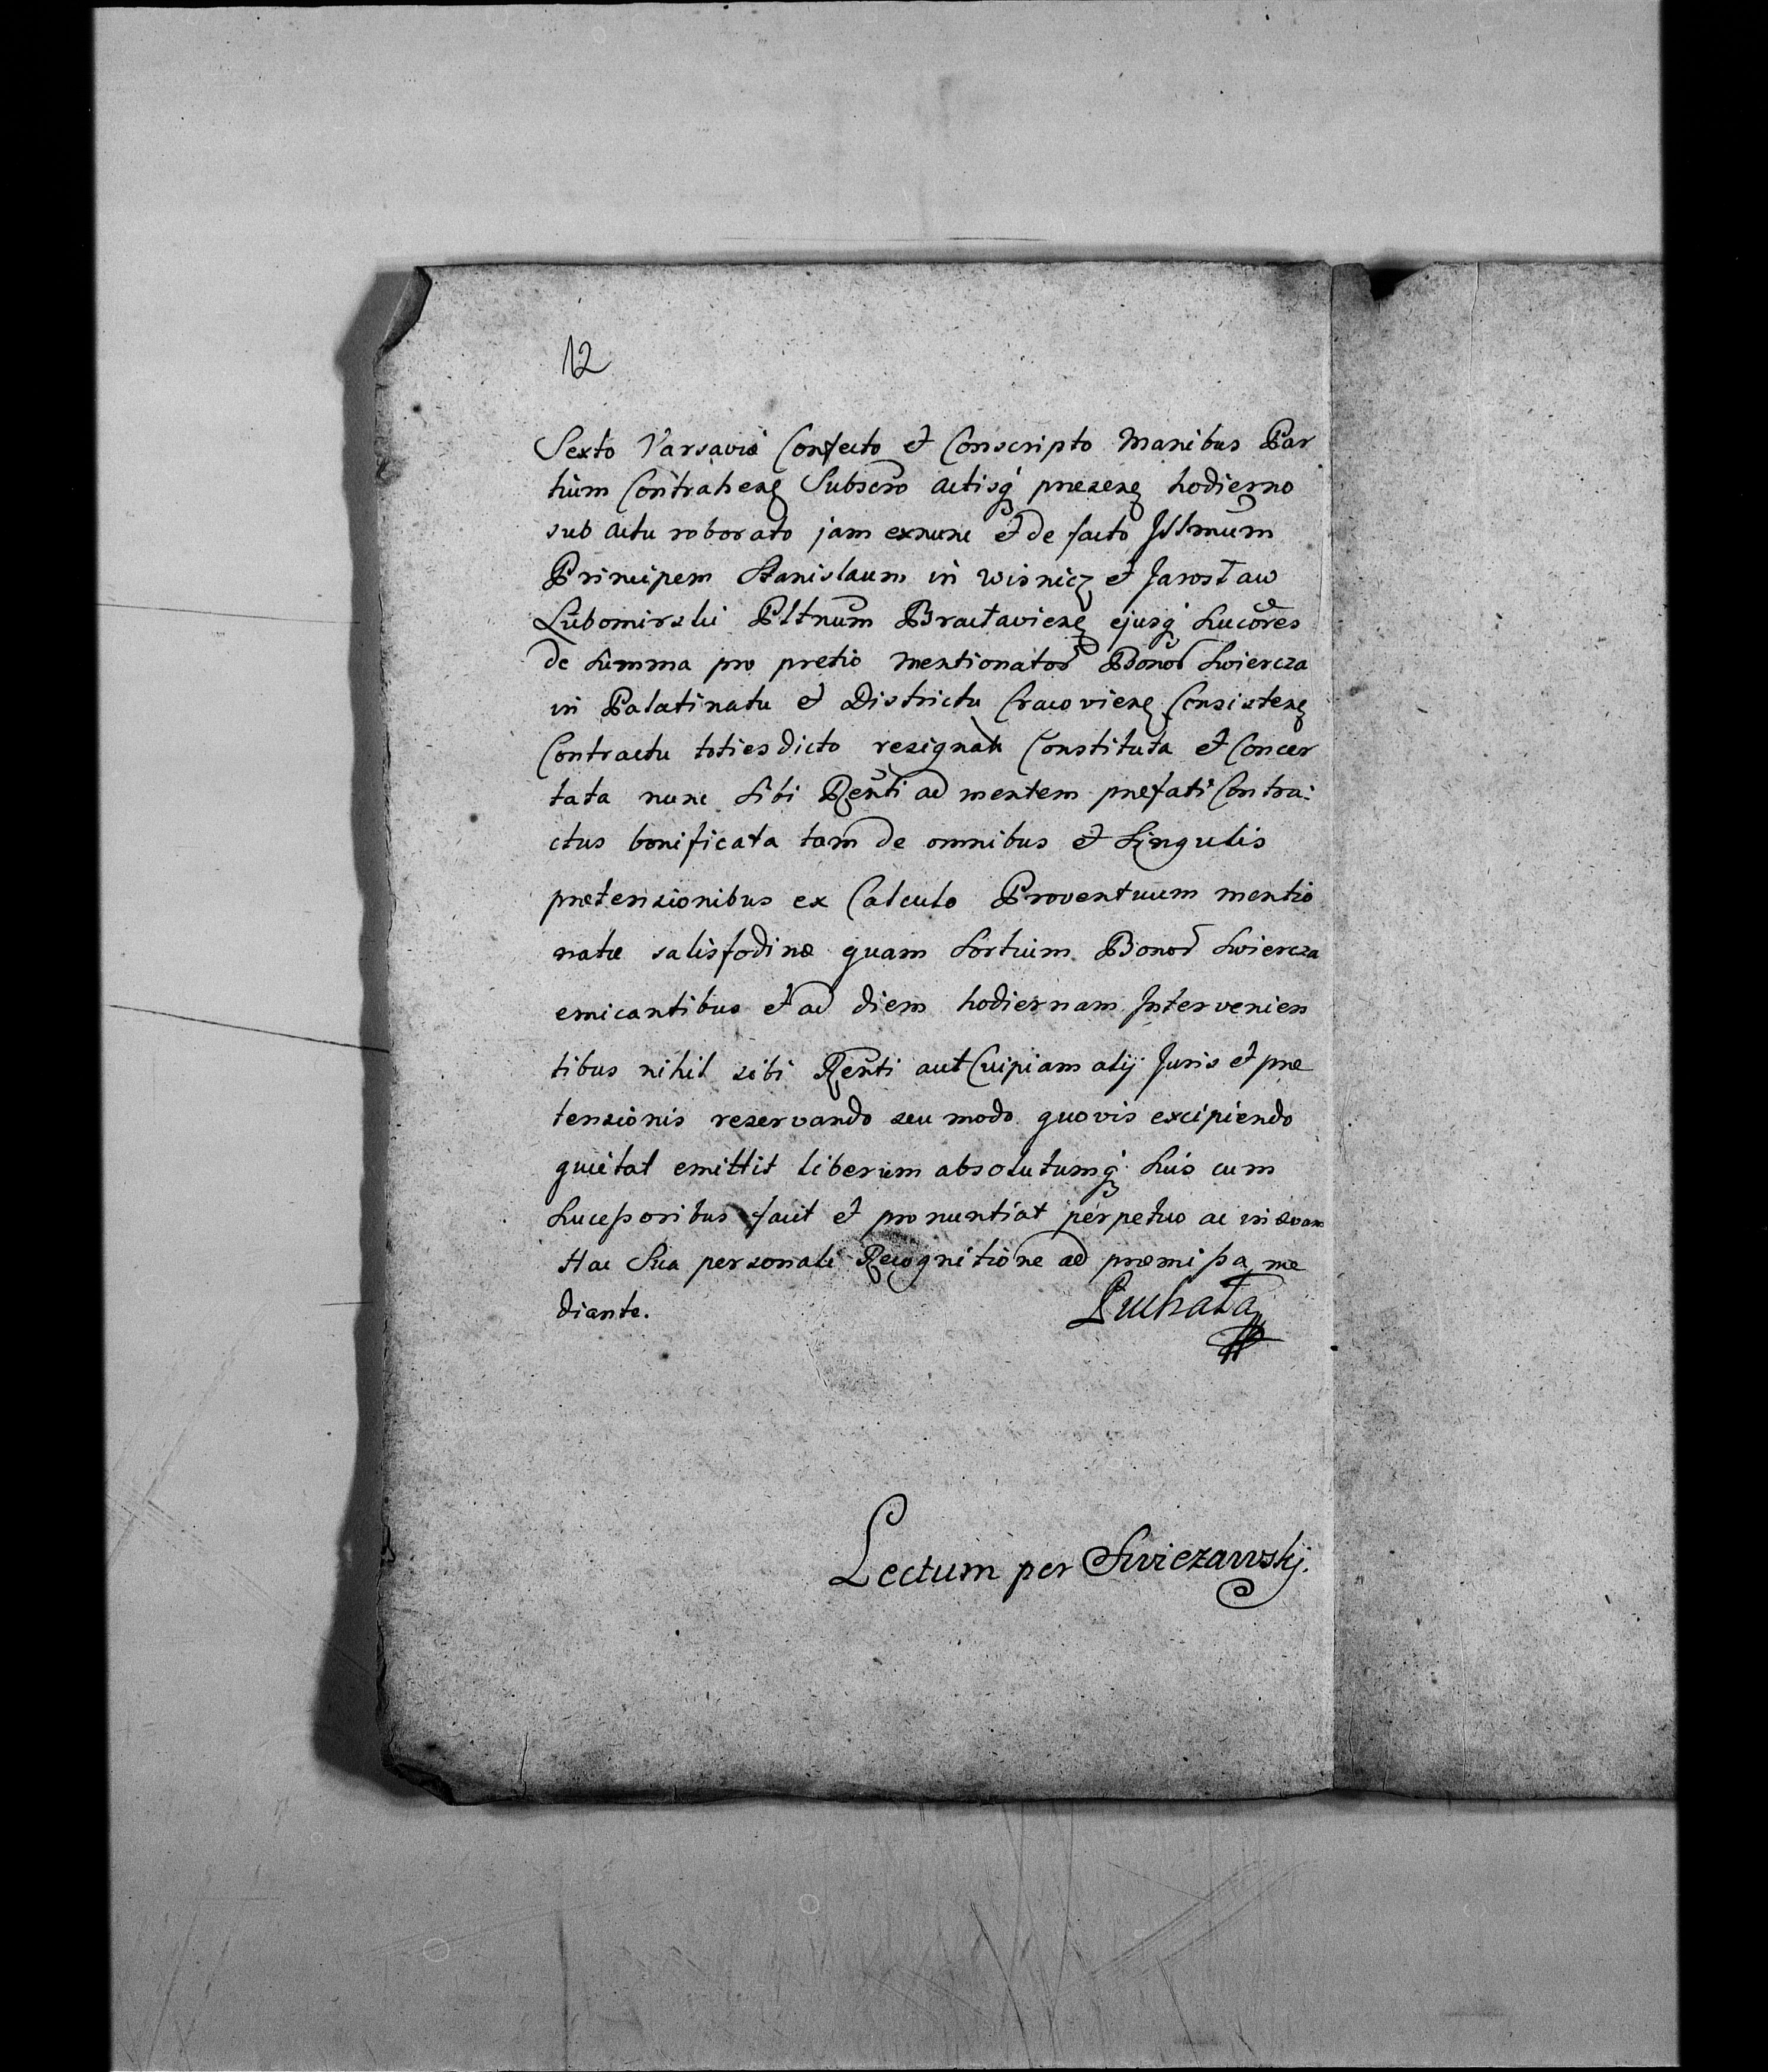 12
Sexto Varsaviæ Confecto et Conscripto Manibus Par
tium Contrahenꝫ Subscro Actisq́ præsenꝫ hodierno
sub Actu roborato jam exnunc et de facto Jllmum
Principem Stanislaum in Wisnicz et Jarosław
Lubomirski Pltnum Bracłavienꝫ ejusq́ Sucores
de Summa pro pretio mentionator Bonor Swiercza
in Palatinatu et Districtu Cracovienꝫ Consistenꝫ
Contractu totiesdicto resignati Constituta et Concer
tata nunc Sibi Rexnti ad mentem præfati Contra:
ctus bonificata tam de omnibus et Singulis
prætensionibus ex Calculo Proventuum mentio
natæ salisfodinæ quam Sortium Bonor Swiercza
emicantibus et ad diem hodiernam Intervenien
tibus nihil sibi Renti aut Cuipiam alij Juris et præ
tensionis reservando seu modo quovis excipiendo
quietat emittit liberum absolutumq́ Suis cum
Sucessoribus facit et pronuntiat perpetuo ac in ævum
Hac Sua personali Recognitione ad præmissa me
diante. Suchała
Lectum per Swiezawskj.